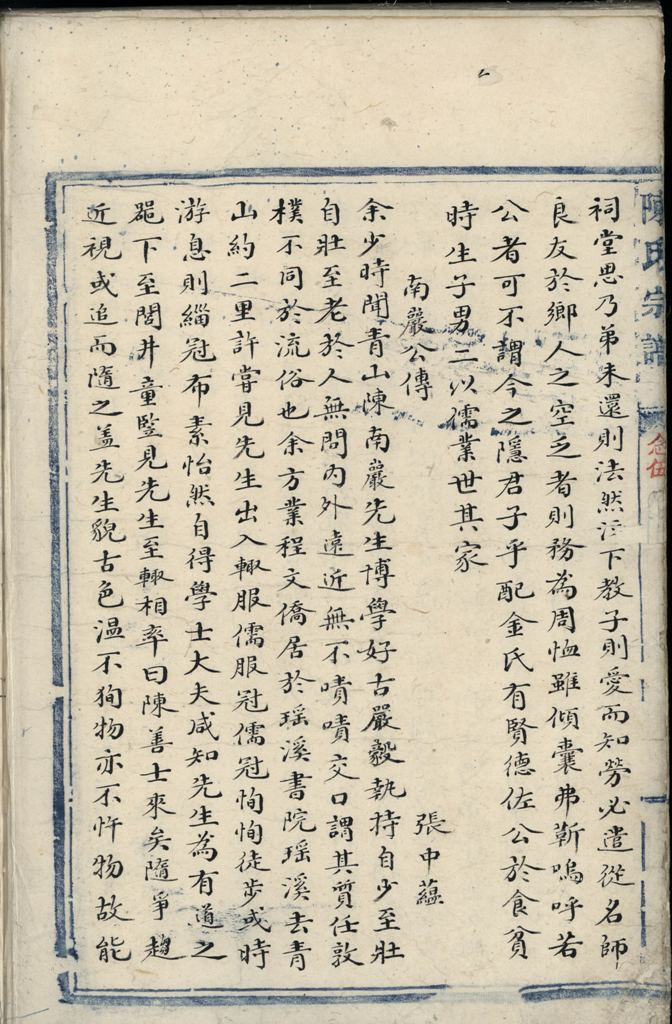 陳氏宗譜
念伍
祠堂思乃弟未還則法然泣下教子則愛而知勞必遣從名師
良友於鄉人之空乏者則務為周恤雖傾囊弗靳嗚呼若
公者可不謂今之隱君子乎配金氏有賢德佐公於食貧
時生子男二以儒業世其家
南嚴公傳
張中蘊
余少時聞青山陳南嚴先生博學好古嚴毅執持自少至壯
自壯至老於人無間內外遠近無不嘖嘖交口謂其質任敦
樸不同於流俗也余方業程文僑居於瑶溪書院瑶溪去青
山約二里許嘗見先生出入輙服儒服冠儒冠恂恂徒步或時
游息則緇冠布素怡然自得學士大夫咸知先生為有道之
噐下至閭井童豎見先生至輙相率曰陳善士來矣隨爭趨
近視或追而隨之盖先生貌古色温不狥物亦不忤物故能